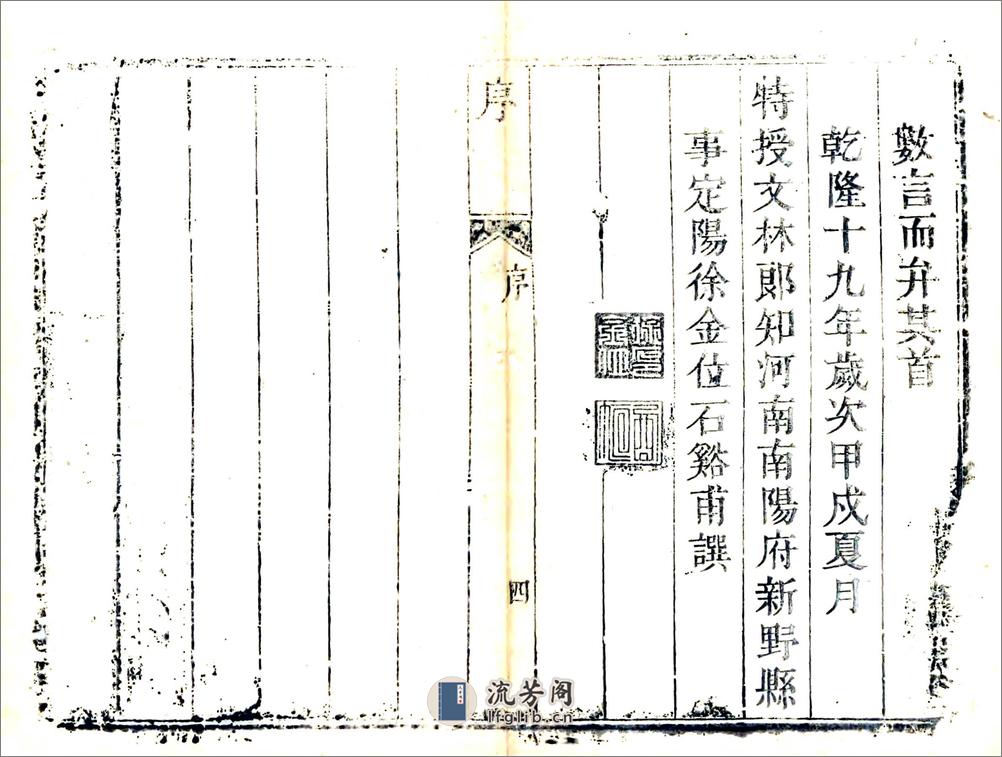 數言而弁其首
乾隆十九年歲次甲戍夏月
特授文林郎知河南南陽府新野縣
事定陽徐金位石谿甫譔
序
序
四
流芳阁
lfglib.cn